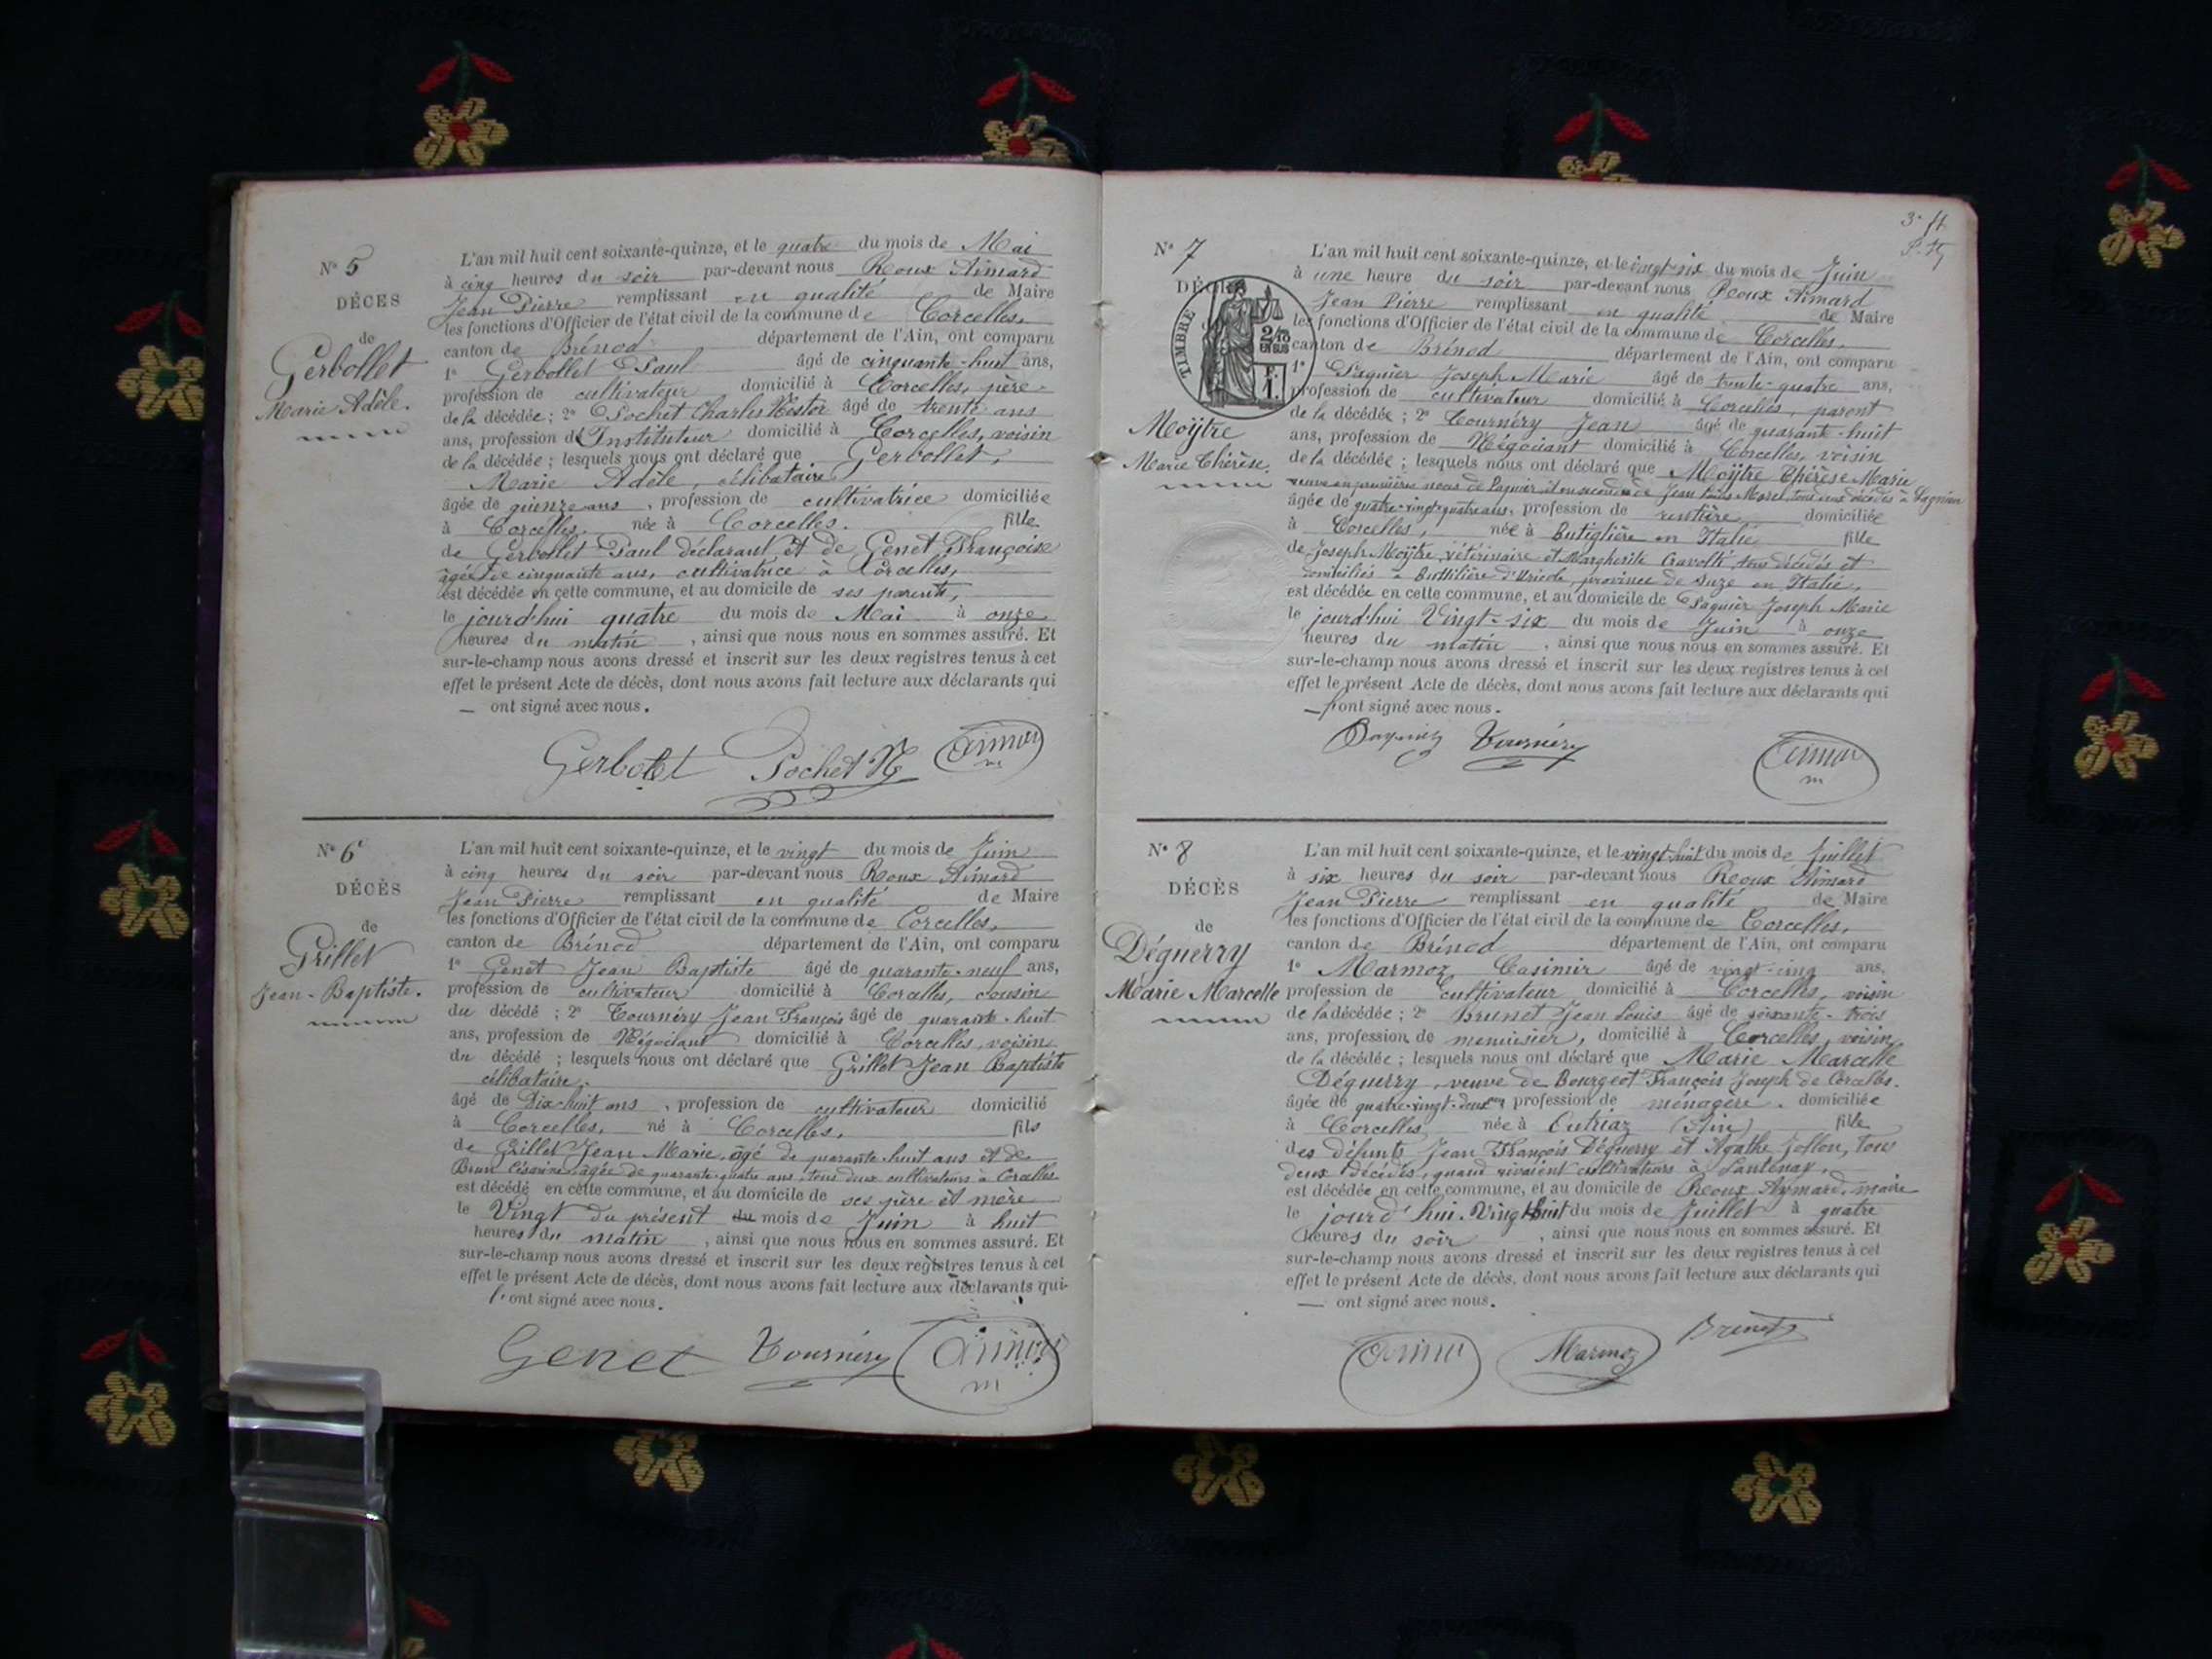 N° 5
DÉCES
de
Gerbollet
Marie Adèle.
L'an mil huit cent soixante-quinze, et le quatre du mois de Mai
à cinq heures du soir par-devant nous Roux Aimard
Jean Pierre remplissant en qualité de Maire
les fonctions d'Officier de l'état civil de la commune de Corcelles,
canton de Brénod département de l'Ain, ont comparu
1° Gerbollet Paul âgé de cinquante-huit ans,
profession de cultivateur domicilié à Corcelles, père
de la décédée ; 2° Pochet Charles Nestor âgé de trente ans
ans, profession d'Instituteur domicilié à Corcelles, voisin
de la décédée ; lesquels nous ont déclaré que Gerbollet,
Marie Adèle, célibataire
âgée de quinze ans, profession de cultivatrice domiciliée
à Corcelles, née à Corcelles. fille
de Gerbollet Paul déclarant et de Genet Françoise
âgée de cinquante ans, cultivatrice à Corcelles,
est décédée en cette commune, et au domicile de ses parents,
le jourd'hui quatre du mois de Mai à onze
heures du matin, ainsi que nous nous en sommes assuré. Et
sur-le-champ nous avons dressé et inscrit sur les deux registres tenus à cet
effet le présent Acte de décès, dont nous avons fait lecture aux déclarants qui
— ont signé avec nous.
Gerbollet Pochet N aimar
m
N° 6
DÉCÈS
de
Grillet
Jean-Baptiste.
L'an mil huit cent soixante-quinze, et le vingt du mois de Juin
à cinq heures du soir par-devant nous Roux Aimard
Jean Pierre remplissant en qualité de Maire
les fonctions d'Officier de l'état civil de la commune de Corcelles,
canton de Brénod département de l'Ain, ont comparu
1° Genet Jean Baptiste âgé de quarante-neuf ans,
profession de cultivateur domicilié à Corcelles, cousin
du décédé ; 2° Tournéry Jean François âgé de quarante-huit
ans, profession de Négociant domicilié à Corcelles, voisin
du décédé ; lesquels nous ont déclaré que Grillet Jean Baptiste
célibataire.
âgé de Dix-huit ans, profession de cultivateur domicilié
à Corcelles, né à Corcelles, fils
de Grillet Jean Marie, âgé de quarante-huit ans et de
Brun Césarine âgée de quarante-quatre ans, tous deux cultivateurs à Corcelles
est décédé en cette commune, et au domicile de ses père et mère
le Vingt du présent du mois de Juin à huit
heures du matin, ainsi que nous nous en sommes assuré. Et
sur-le-champ nous avons dressé et inscrit sur les deux registres tenus à cet
effet le présent Acte de décès, dont nous avons fait lecture aux déclarants qui
l'ont signé avec nous.
Genet Tournéry aimar
m
3e
N° 7
DÉCÈS
TIMBRE
2/10
EN SUS
F.
1.
Moÿtre
Marie Thérèse.
L'an mil huit cent soixante-quinze, et le vingt-six du mois de Juin
à une heure du soir par-devant nous Roux Aimard
Jean Pierre remplissant en qualité de Maire
les fonctions d'Officier de l'état civil de la commune de Corcelles.
canton de Brénod département de l'Ain, ont comparu
1° Paquier Joseph Marie âgé de trente-quatre ans,
profession de cultivateur domicilié à Corcelles, parent
de la décédée ; 2° Tournéry Jean âgé de quarante-huit
ans, profession de Négociant domicilié à Corcelles, voisin
de la décédée ; lesquels nous ont déclaré que Moÿtre Thérèse Marie
veuve en premières noces de Paquier et en secondes de Jean Louis Morel, tous deux décédés à Lagnieu
âgée de quatre-vingt-quatre ans, profession de rentière domiciliée
à Corcelles, née à Butiglière en Italie fille
de Joseph Moÿtre, vétérinaire et Margherite Cravolti, tous décédés et
domiciliés à Buttilière d'Uricole, province de Suze en Italie,
est décédée en cette commune, et au domicile de Paquier Joseph Marie
le jourd'hui Vingt-six du mois de Juin à onze
heures du matin, ainsi que nous nous en sommes assuré. Et
sur-le-champ nous avons dressé et inscrit sur les deux registres tenus à cet
effet le présent Acte de décès, dont nous avons fait lecture aux déclarants qui
— ont signé avec nous.
Paquier Tournéry aimar
m
N° 8
DÉCÈS
de
Déguerry
Marie Marcelle
L'an mil huit cent soixante-quinze, et le vingt-huit du mois de Juillet
à six heures du soir par-devant nous Roux Aimard
Jean Pierre remplissant en qualité de Maire
les fonctions d'Officier de l'état civil de la commune de Corcelles,
canton de Brénod département de l'Ain, ont comparu
1° Marmoz Casimir âgé de vingt-cinq ans,
profession de cultivateur domicilié à Corcelles, voisin
de la décédée ; 2° Brunet Jean Louis âgé de soixante-trois
ans, profession de menuisier, domicilié à Corcelles, voisin
de la décédée ; lesquels nous ont déclaré que Marie Marcelle
Déguerry, veuve de Bourgeot François Joseph de Corcelles.
âgée de quatre-vingt-deux ans profession de ménagère. domiciliée
à Corcelles née à Outriaz (Ain) fille
des défunts Jean François Déguerry et Agathe Jollon, tous
deux décédés, quand vivaient cultivateurs à Lantenay,
est décédée en cette commune, et au domicile de Roux Aymard, maire
le jourd'hui. Vingt huit du mois de Juillet à quatre
heures du soir, ainsi que nous nous en sommes assuré. Et
sur-le-champ nous avons dressé et inscrit sur les deux registres tenus à cet
effet le présent Acte de décès, dont nous avons fait lecture aux déclarants qui
— ont signé avec nous.
aimar Marmoz Brunet